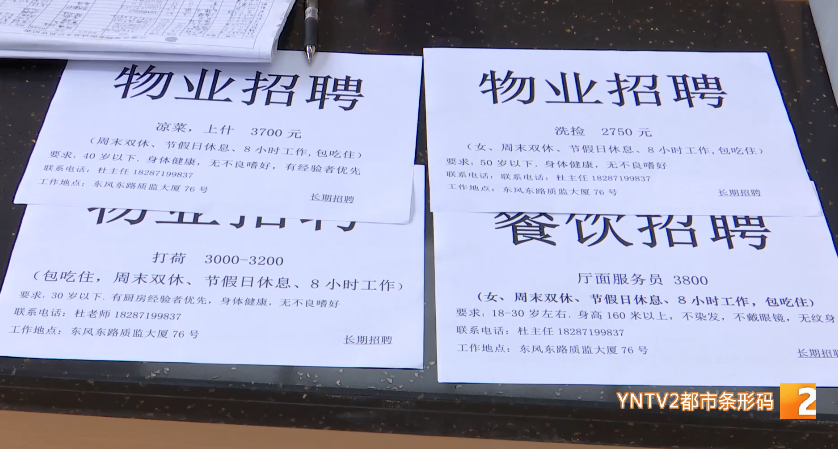 物业招聘
凉菜，上什 3700 元
（周末双休、节假日休息、8 小时工作,包吃住）
要求：40 岁以下．身体健康，无不良嗜好，有经验者优先
联系电话：杜主任 18287199837
工作地点：东风东路质监大厦 76 号
长期招聘
物业招聘
洗捡 2750 元
（女、周末双休、节假日休息、8 小时工作,包吃住）
要求：50 岁以下．身体健康，无不良嗜好
联系电话：联系电话：杜主任 18287199837
工作地点：东风东路质监大厦 76 号
长期招聘
物业招聘
打荷 3000-3200
（包吃住，周末双休、节假日休息、8 小时工作）
要求：30 岁以下．有厨房经验者优先，身体健康，无不良嗜好
联系电话：杜老师 18287199837
工作地点：东风东路质监大厦 76 号
长期招聘
餐饮招聘
厅面服务员 3800
（女、周末双休、节假日休息、8 小时工作，包吃住）
要求：18-30 岁左右．身高 160 米以上，不染发，不戴眼镜，无纹身
联系电话：杜主任 18287199837
工作地点：东风东路质监大厦 76 号
长期招聘
YNTV2都市条形码 2